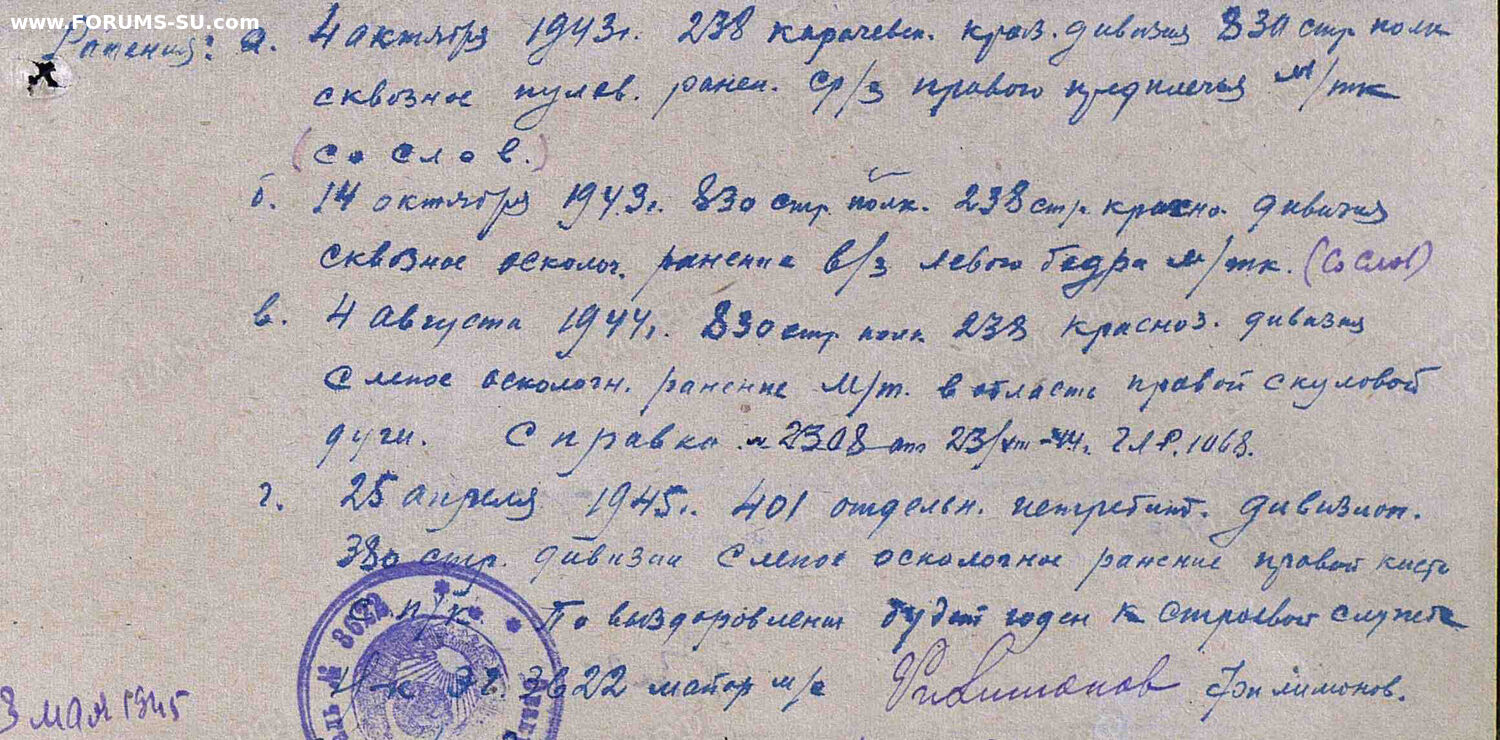 www.FORUMS-SU.com
Ранения: а. 4 октября 1943г. 238 карачевск. краз. дивизия 830 стр полк
сквозное пулев. ранен. ср/з правого предплечья м/тк
(со слов.)
б. 14 октября 1943г. 830 стр. полк. 238 стр. красно. дивизия
сквозное осколоч. ранение в/з левого бедра м/тк. (со слов)
в. 4 августа 1944г. 830 стр. полк 238 красноз. дивизия
слепое осколочн. ранение м/т. в область правой скуловой
дуги. Справка № 2308 от 23/ -44г. ГЛР. 1068.
г. 25 апреля 1945г. 401 отдельн. истребит. дивизион.
380 стр. дивизии слепое осколочное ранение правой кисти
с п/к. По выздоровлении будет годен к строевой службе
Н-к ЭГ 3622 майор м/с Филимонов Филимонов.
3 мая 1945